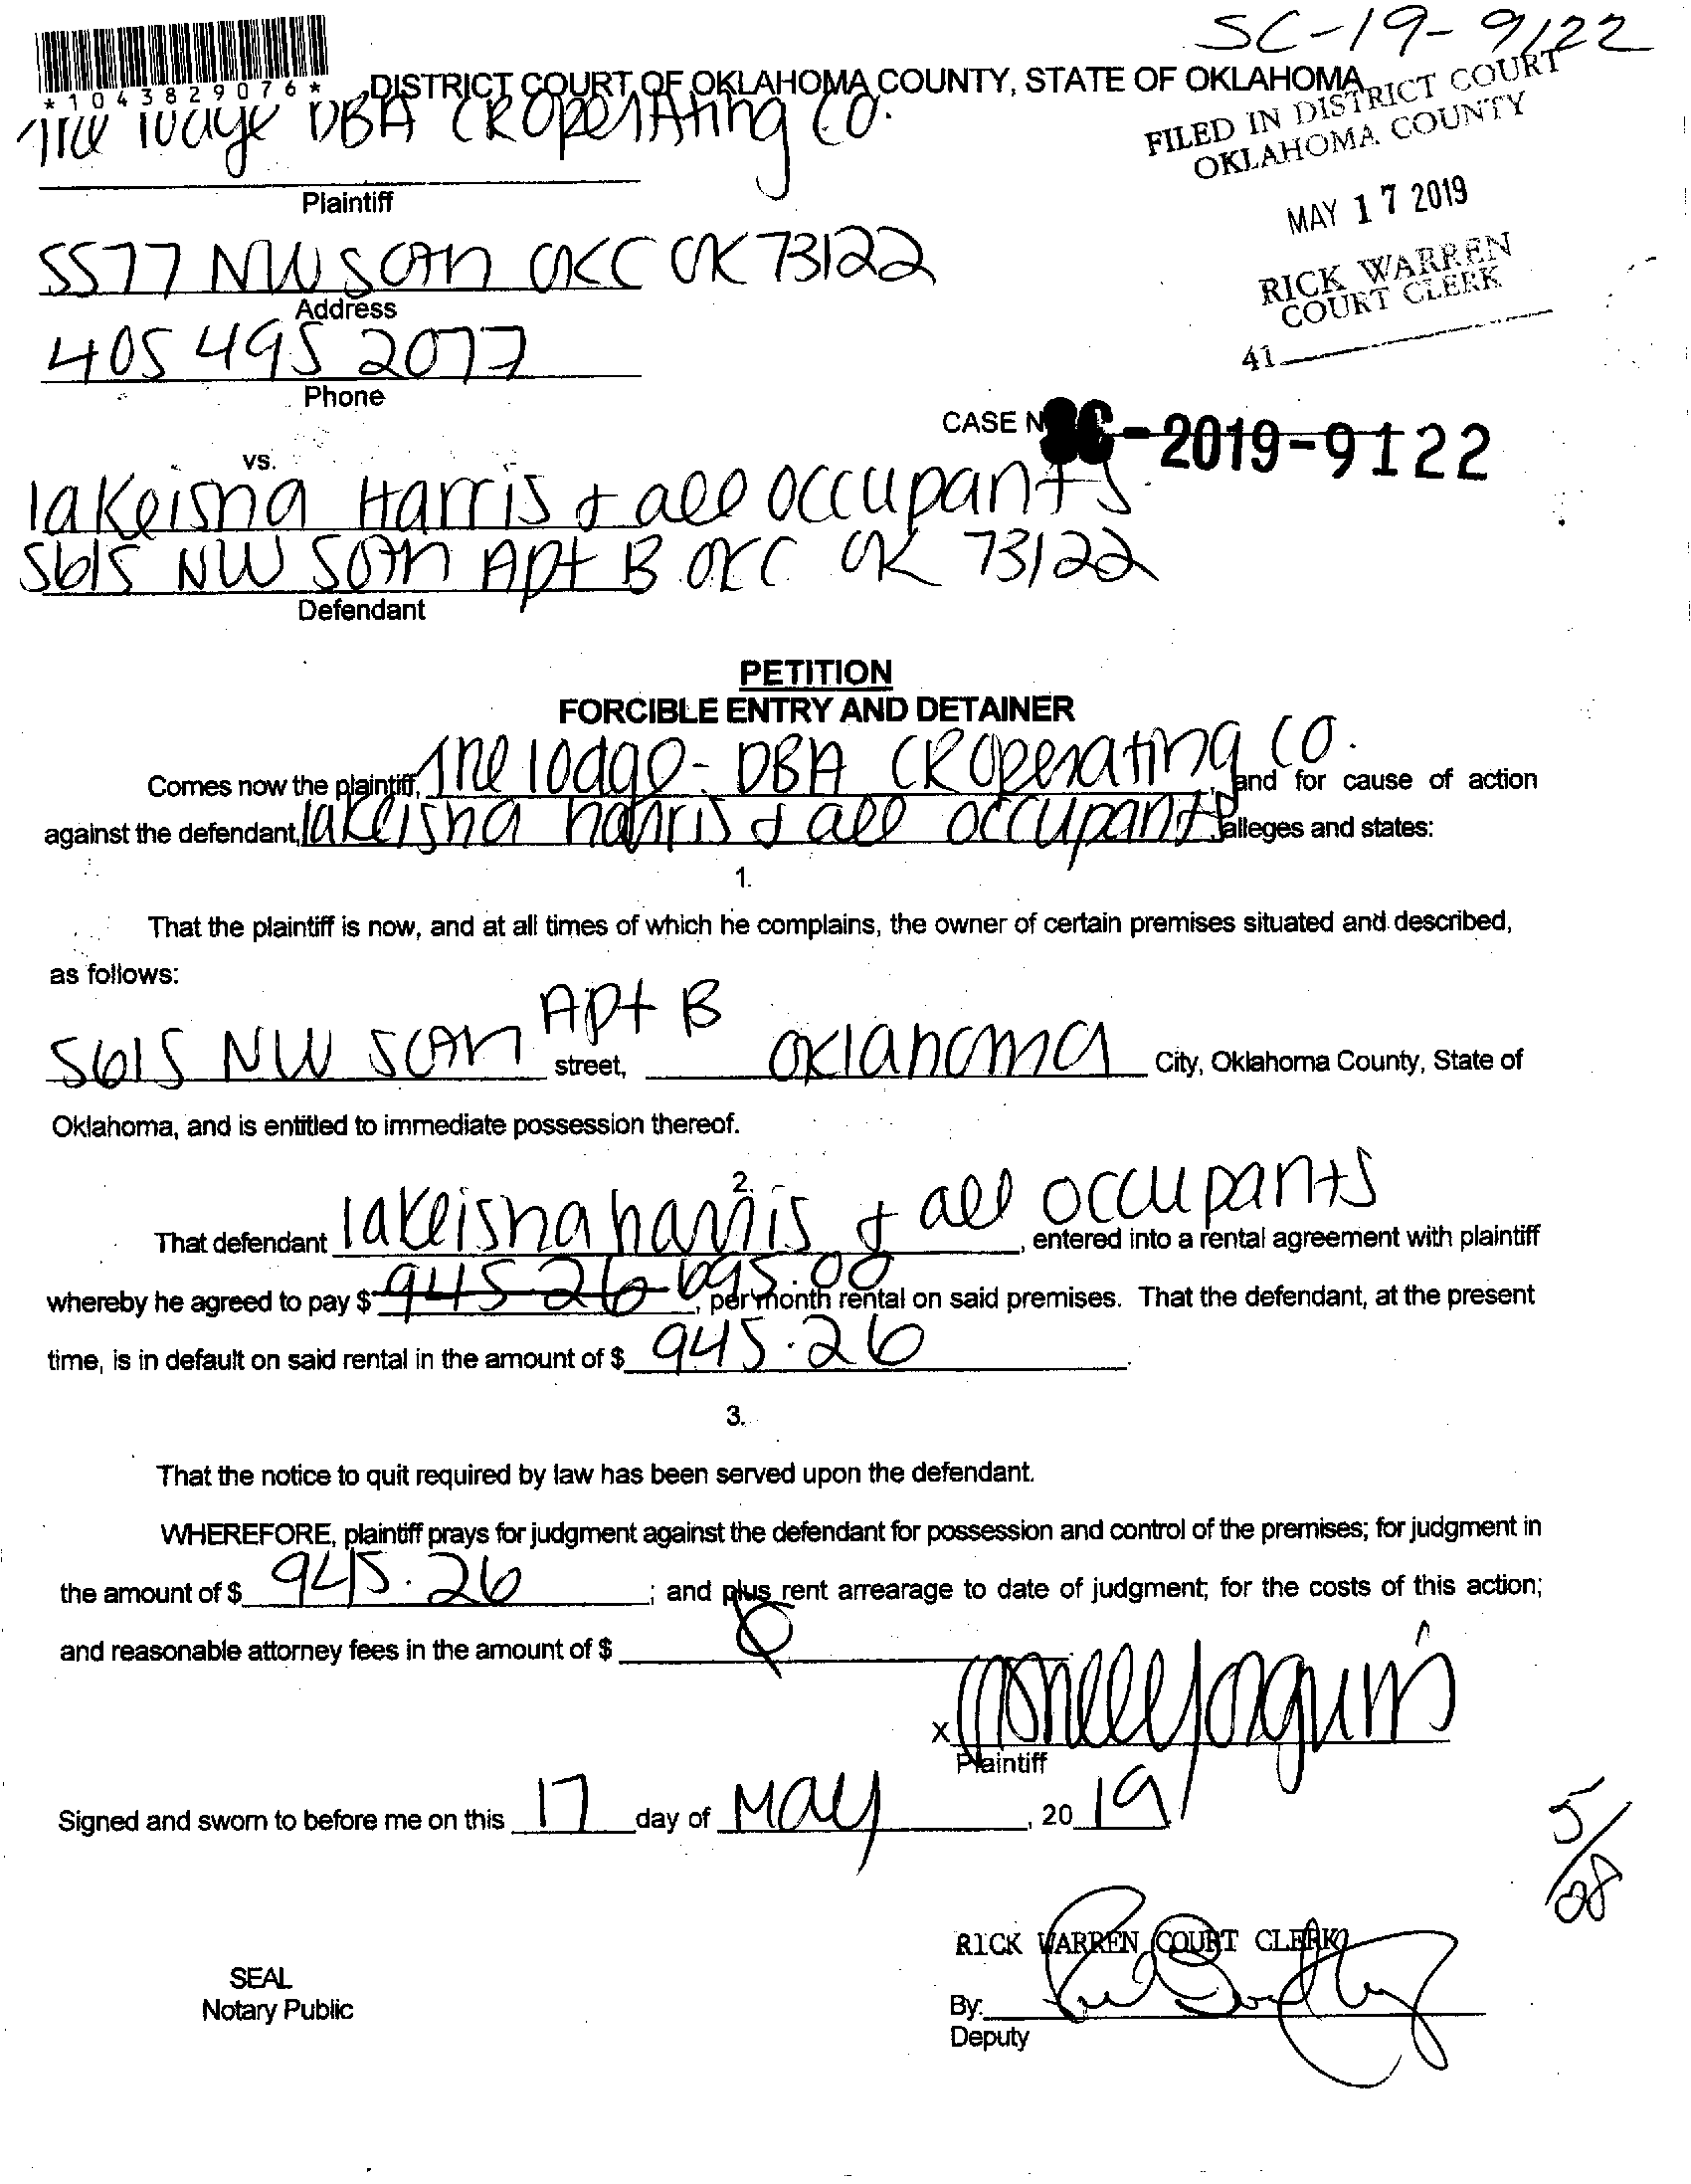 SC-19-9122
*1043829076*
DISTRICT COURT OF OKLAHOMA COUNTY, STATE OF OKLAHOMA
FILED IN DISTRICT COURT
OKLAHOMA COUNTY
The lodge DBA CROperating CO.
Plaintiff
MAY 17 2019
5577 NW 50th OKC OK 73122
Address
RICK WARREN
COURT CLERK
405 495 2077
Phone
41
CASE N
SC-2019-9122
vs.
lakeisha Harris & all occupants
5615 NW 50th Apt B OKC OK 73122
Defendant
PETITION
FORCIBLE ENTRY AND DETAINER
Comes now the plaintiff, The lodge - DBA CROperating CO. , and for cause of action
against the defendant, lakeisha harris & all occupants , alleges and states:
1.
That the plaintiff is now, and at all times of which he complains, the owner of certain premises situated and described,
as follows:
5615 NW 50th Apt B street, Oklahoma City, Oklahoma County, State of
Oklahoma, and is entitled to immediate possession thereof.
2.
That defendant lakeisha harris & all occupants , entered into a rental agreement with plaintiff
whereby he agreed to pay $ 945 26 695.00 , per month rental on said premises. That the defendant, at the present
time, is in default on said rental in the amount of $ 945.26 .
3.
That the notice to quit required by law has been served upon the defendant.
WHEREFORE, plaintiff prays for judgment against the defendant for possession and control of the premises; for judgment in
the amount of $ 945.26 ; and plus rent arrearage to date of judgment; for the costs of this action;
and reasonable attorney fees in the amount of $
X
Plaintiff
Signed and sworn to before me on this 17 day of May , 20 19
5/28
RICK WARREN COURT CLERK
SEAL
Notary Public
By:
Deputy